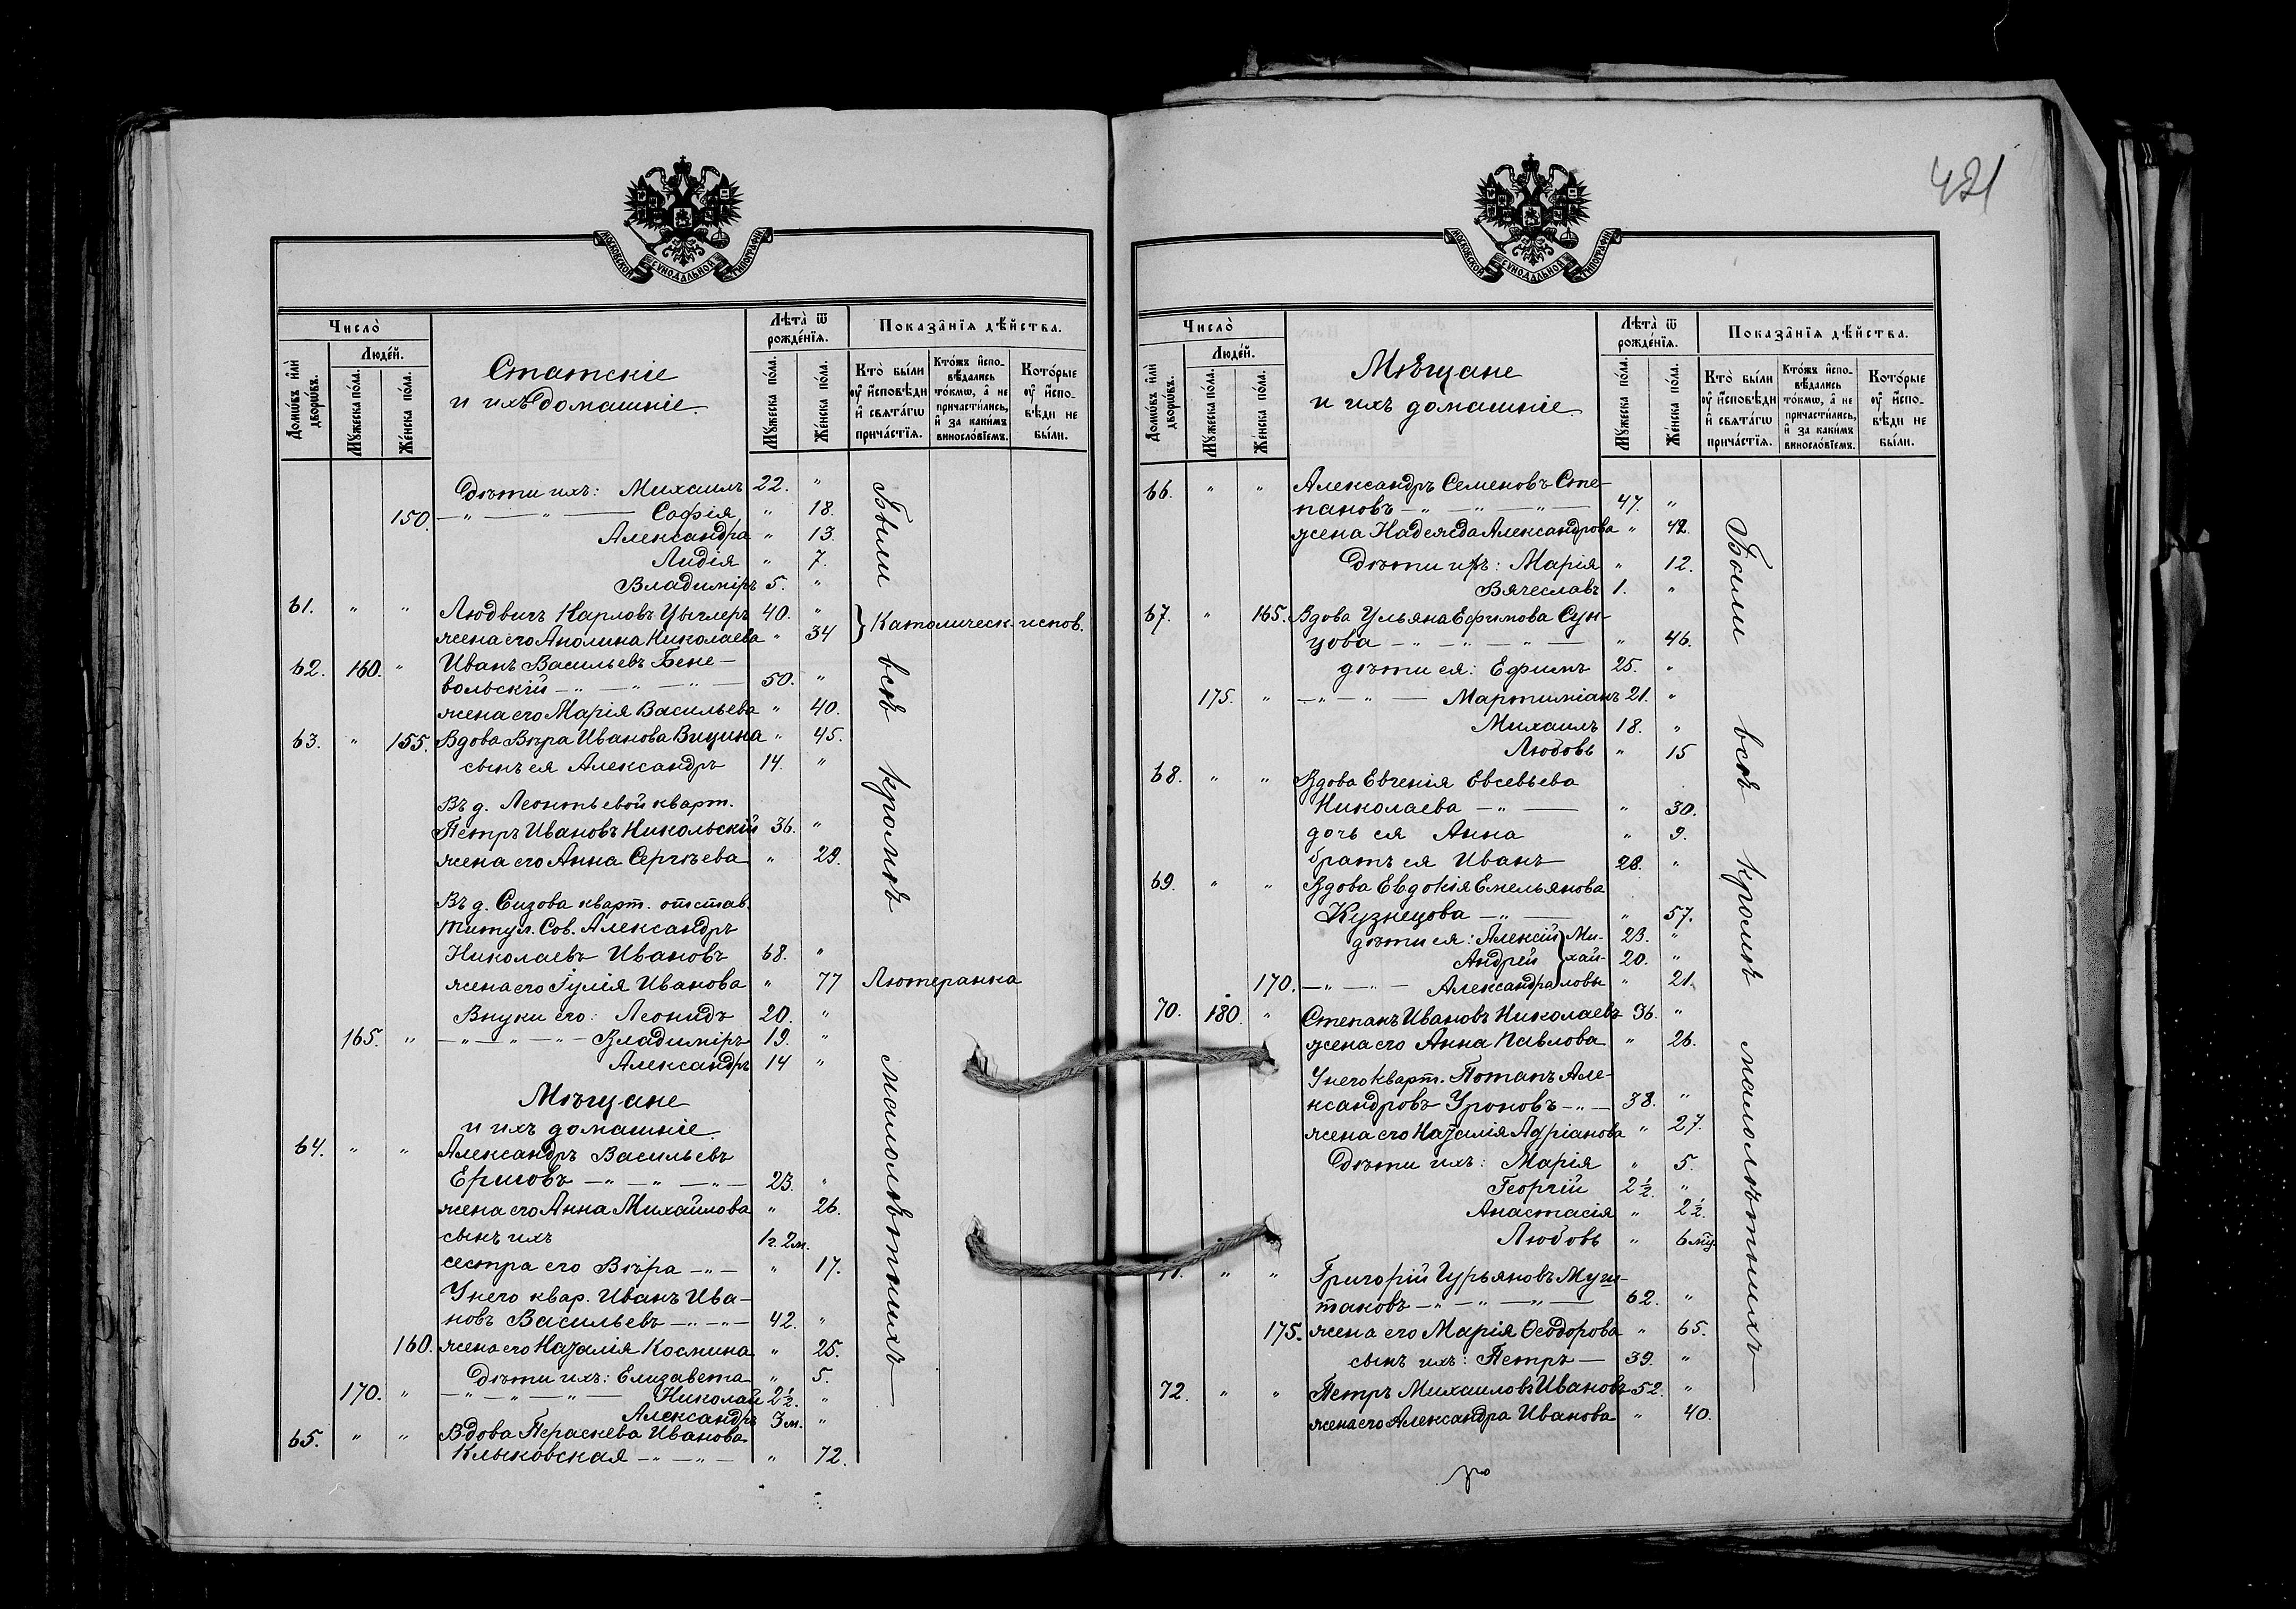 МОСКОВСКОЙ СѴНОДАЛЬНОЙ ТИПОГРАФІИ
Число̀
Домѡ́въ и҆лѝ дворѡ́въ.
Люде́й.
Мꙋ́жеска по́ла.
Же́нска по́ла.
Статскіе
и ихъ домашніе.
Лѣта̀ ѿ рожде́нїѧ.
Мꙋ́жеска по́ла.
Же́нска по́ла.
Показа̑нїѧ дѣ́йства.
Кто̀ бы́ли ᲂу҆ и҆сповѣ́ди и҆ свѧта́гѡ прича́стїѧ.
Кто́жъ и҆спо-вѣ́дались то́кмѡ, а҆ не причасти́лись, и҆ за каки́мъ винословїемъ.
Кото́рые ᲂу҆ и҆спо-вѣ́ди не бы́ли.
Дѣти ихъ: Михаилъ 22. "
150. —"— —"— Софія " 18.
Александра " 13.
Лидія " 7.
Владиміръ 5. "
61. " " Людвигъ Карловъ Цыглеръ 40. "
жена его Аполина Николаева " 34 } Католическ. испов.
62. 160. " Иванъ Васильевъ Бене-
вольскій —"— —"— 50. "
жена его Марія Васильева " 40.
63. " 155. Вдова Вѣра Иванова Вицина " 45.
сынъ ея Александръ 14. "
Въ д. Леонтьевой кварт.
Петръ Ивановъ Никольскій 36. "
жена его Анна Сергѣева " 29.
Въ д. Сизова кварт. отстав.
титул. Сов. Александръ
Николаевъ Ивановъ 68. "
жена его Іулія Иванова " 77 Лютеранка
Внуки его: Леонидъ 20. "
165. " —"—"—"— Владиміръ 19. "
Александръ 14 "
Мѣщане
и ихъ домашніе.
64. " " Александръ Васильевъ
Ершовъ —"—"—"— 23. "
жена его Анна Михайлова " 26.
сынъ ихъ 1г. 2м.
сестра его Вѣра —"— " 17.
У него квар. Иванъ Ива-
новъ Васильевъ —"—"— 42. "
160. жена его Наталія Космина " 25.
Дѣти ихъ: Елизавета " 5.
170. " —"—"—"— Николай 2½. "
Александръ 3м. "
65. " " Вдова Параскева Иванова
Клыковская —"—"— " 72.
Были всѣ кромѣ малолѣтнихъ
421
МОСКОВСКОЙ СѴНОДАЛЬНОЙ ТИПОГРАФІИ
Число̀
Домѡ́въ и҆лѝ дворѡ́въ.
Люде́й.
Мꙋ́жеска по́ла.
Же́нска по́ла.
Мѣщане
и ихъ домашніе.
Лѣта̀ ѿ рожде́нїѧ.
Мꙋ́жеска по́ла.
Же́нска по́ла.
Показа̑нїѧ дѣ́йства.
Кто̀ бы́ли ᲂу҆ и҆сповѣ́ди и҆ свѧта́гѡ прича́стїѧ.
Кто́жъ и҆спо-вѣ́дались то́кмѡ, а҆ не причасти́лись, и҆ за каки́мъ винословїемъ.
Кото́рые ᲂу҆ и҆спо-вѣ́ди не бы́ли.
66. " " Александръ Семеновъ Сте-
пановъ —"—"—"— 47. "
жена Надежда Александрова " 42.
Дѣти ихъ: Марія " 12.
Вячеславъ 1. "
67. " 165. Вдова Ульяна Ефимова Сун-
цова —"—"—"— " 46.
дѣти ея: Ефимъ 25. "
175. " —"—"— Мартиміанъ 21. "
Михаилъ 18. "
Любовь " 15
68. " " Вдова Евгенія Евсевьева
Николаева —"— " 30.
дочь ея Анна " 9.
братъ ея Иванъ 28. "
69. " " Вдова Евдокія Емельянова
Кузнецова —"— " 57.
дѣти ея: Алексій } Ми- 23. "
Андрей } хай- 20. "
170. —"—"— Александра } ловы " 21.
70. 180. " Степанъ Ивановъ Николаевъ 36. "
жена его Анна Павлова " 26.
У него кварт. Потапъ Але-
ксандровъ Уроновъ —"— 38. "
жена его Наталія Адріанова " 27.
Дѣти ихъ: Марія " 5.
Георгій 2½. "
Анастасія " 2½.
Любовь " 6 мц.
71. " " Григорій Гурьяновъ Муш-
таковъ —"—"—"— 62. "
175. жена его Марія Ѳеодорова " 65.
сынъ ихъ: Петръ — 39. "
72. " " Петръ Михаиловъ Ивановъ 52. "
жена его Александра Иванова " 40.
Были всѣ кромѣ малолѣтнихъ